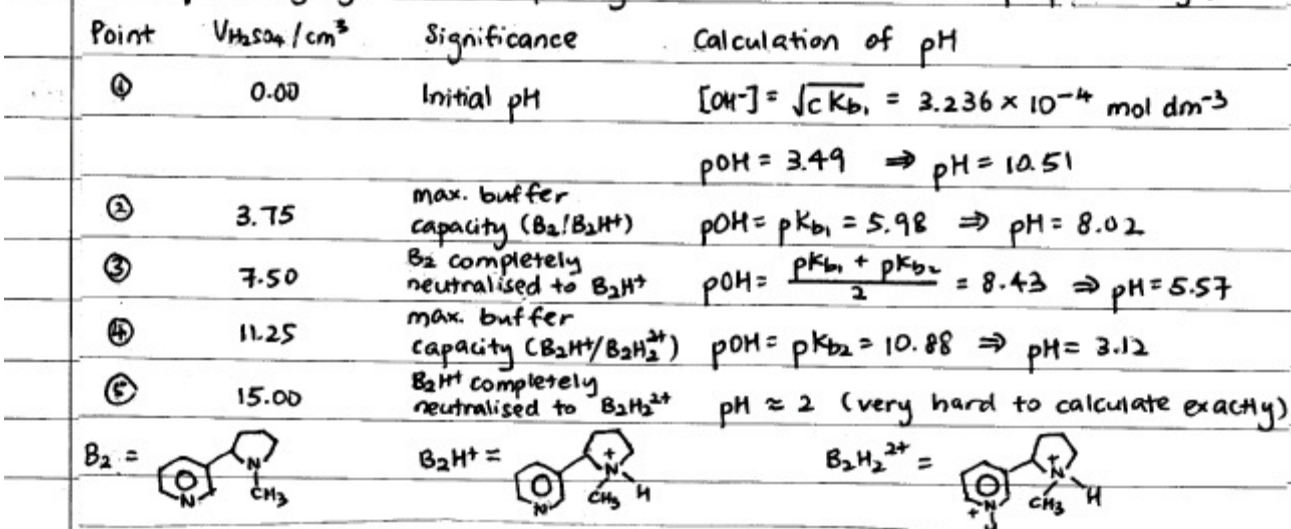 Point V_H₂SO₄ / cm³ Significance Calculation of pH
① 0.00 Initial pH [OH⁻] = √(c K_b₁) = 3.236 × 10⁻⁴ mol dm⁻³
pOH = 3.49 ⇒ pH = 10.51
② 3.75 max. buffer capacity (B₂/B₂H⁺) pOH = pK_b₁ = 5.98 ⇒ pH = 8.02
③ 7.50 B₂ completely neutralised to B₂H⁺ pOH = (pK_b₁ + pK_b₂)/2 = 8.43 ⇒ pH = 5.57
④ 11.25 max. buffer capacity (B₂H⁺/B₂H₂²⁺) pOH = pK_b₂ = 10.88 ⇒ pH = 3.12
⑤ 15.00 B₂H⁺ completely neutralised to B₂H₂²⁺ pH ≈ 2 (very hard to calculate exactly)
B₂ = B₂H⁺ = B₂H₂²⁺ =
N + N + N
N CH₃ N CH₃ H + N CH₃ H